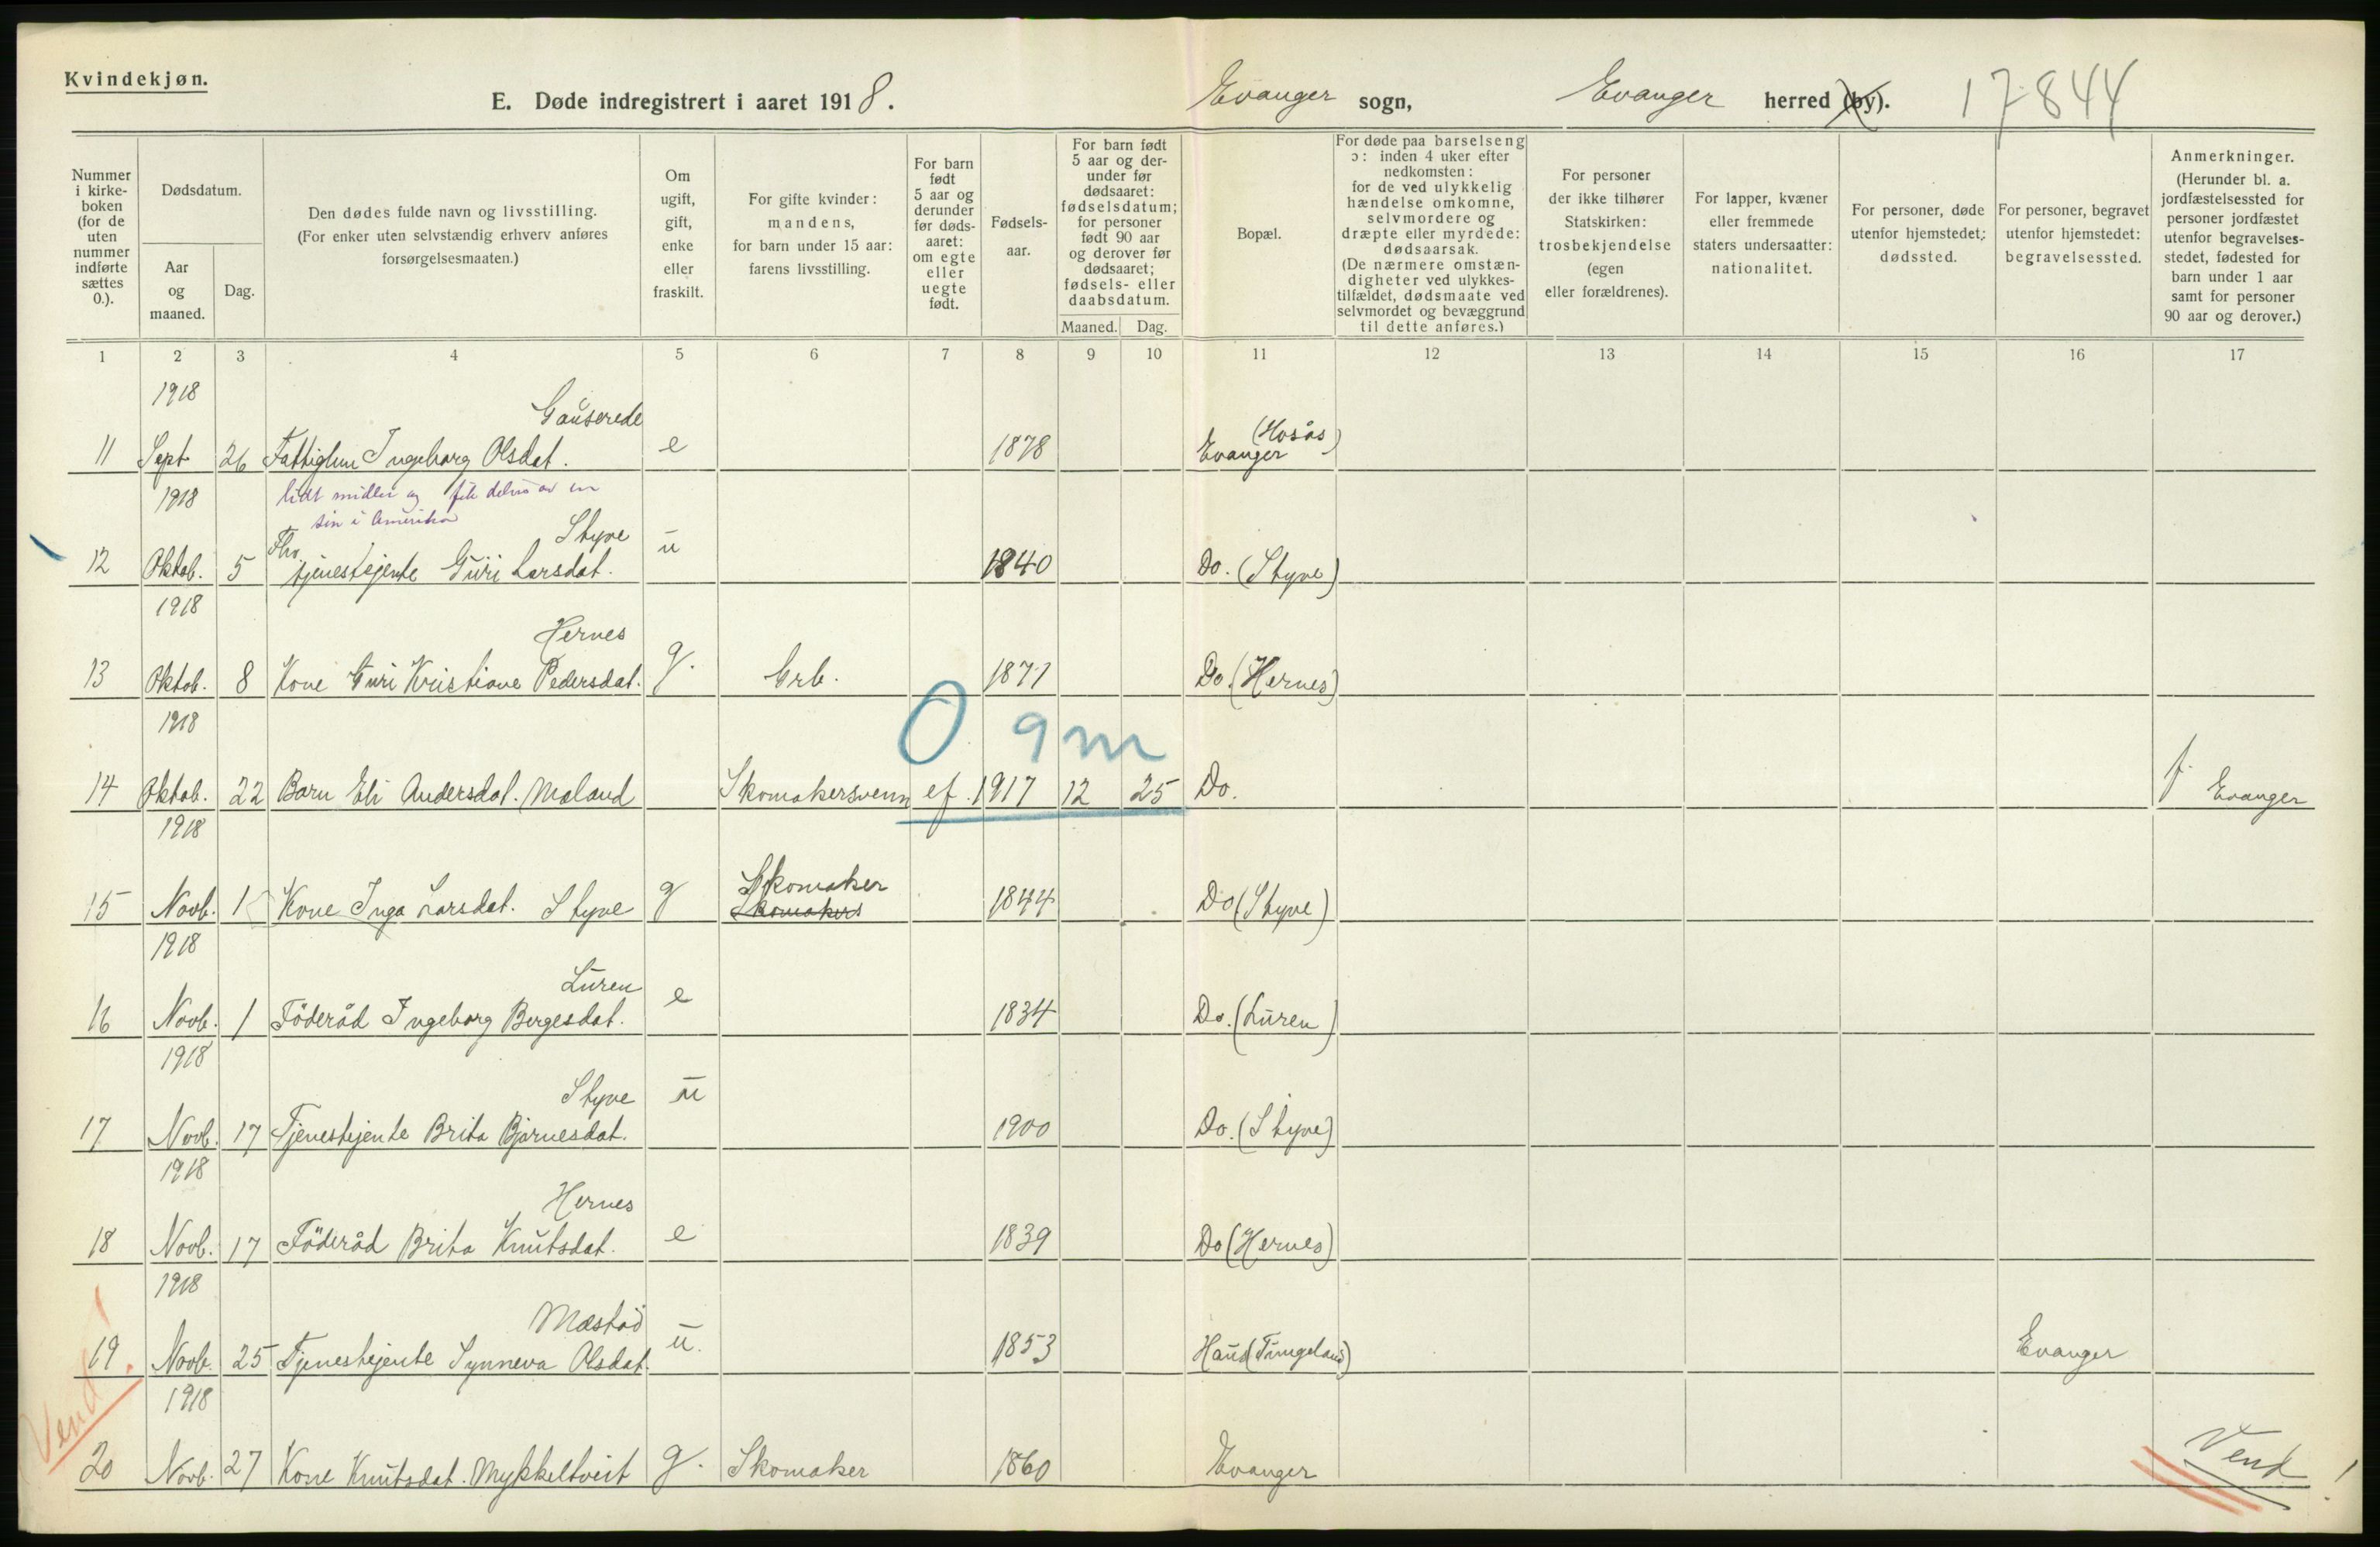 Kvindekjøn.
E. Døde indregistrert i aaret 1918.
Evanger sogn, Evanger herred (by). 17-844
Nummer i kirkeboken (for de uten nummer indførte sættes 0.).
Dødsdatum.
Aar og maaned.
Dag.
Den dødes fulde navn og livsstilling.
(For enker uten selvstændig erhverv anføres forsørgelsesmaaten.)
Om ugift, gift, enke eller fraskilt.
For gifte kvinder: mandens, for barn under 15 aar: farens livsstilling.
For barn født 5 aar og derunder før dødsaaret: om egte eller uegte født.
Fødselsaar.
For barn født 5 aar og derunder før dødsaaret: fødselsdatum; for personer født 90 aar og derover før dødsaaret; fødsels- eller daabsdatum.
Maaned. Dag.
Bopæl.
For døde paa barselseng ɔ: inden 4 uker efter nedkomsten: for de ved ulykkelig hændelse omkomne, selvmordere og dræpte eller myrdede: dødsaarsak.
(De nærmere omstændigheter ved ulykkestilfældet, dødsmaate ved selvmordet og bevæggrund til dette anføres.)
For personer der ikke tilhører Statskirken: trosbekjendelse (egen eller forældrenes).
For lapper, kvæner eller fremmede staters undersaatter: nationalitet.
For personer, døde utenfor hjemstedet: dødssted.
For personer, begravet utenfor hjemstedet: begravelsessted.
Anmerkninger.
(Herunder bl. a. jordfæstelsessted for personer jordfæstet utenfor begravelsesstedet, fødested for barn under 1 aar samt for personer 90 aar og derover.)
1 2 3 4 5 6 7 8 9 10 11 12 13 14 15 16 17
1918
Gauserede
11 Sept. 26 Fattiglem Ingeborg Olsdat. e 1878 Evanger (Hosås)
1918 lidt midler og fik delvis av en
søn i Amerika
Styve
12 Oktob. 5 Fhv. tjenestejente Guri Larsdat. u 1840 Do. (Styve)
1918
Hernes
13 Oktob. 8 Kone Guri Kristiane Pedersdat. g. Grb. 1871 Do. (Hernes)
1918
0 9 m
14 Oktob. 22 Barn Eli Andersdat. Mæland Skomakersvenn ef. 1917 12 25 Do. f. Evanger
1918
Skomaker
15 Novb. 1 Kone Inga Larsdat. Styve g Skomakers 1844 Do (Styve)
1918
Luren
16 Novb. 1 Föderåd Ingeborg Bergesdat. e 1834 Do. (Luren)
1918
Styve
17 Novb. 17 Tjenestejente Brita Bjørnesdat. u 1900 Do. (Styve)
1918
Hernes
18 Novb. 17 Föderåd Brita Knutsdat. e 1839 Do (Hernes)
1918
Mæstad
19 Novb. 25 Tjenestejente Synneva Olsdat. u. 1853 Haus (Tungeland) Evanger
1918
Vend!
20 Novb. 27 Kone Knutsdat. Mykkeltveit g. Skomaker 1860 Evanger
Vend!